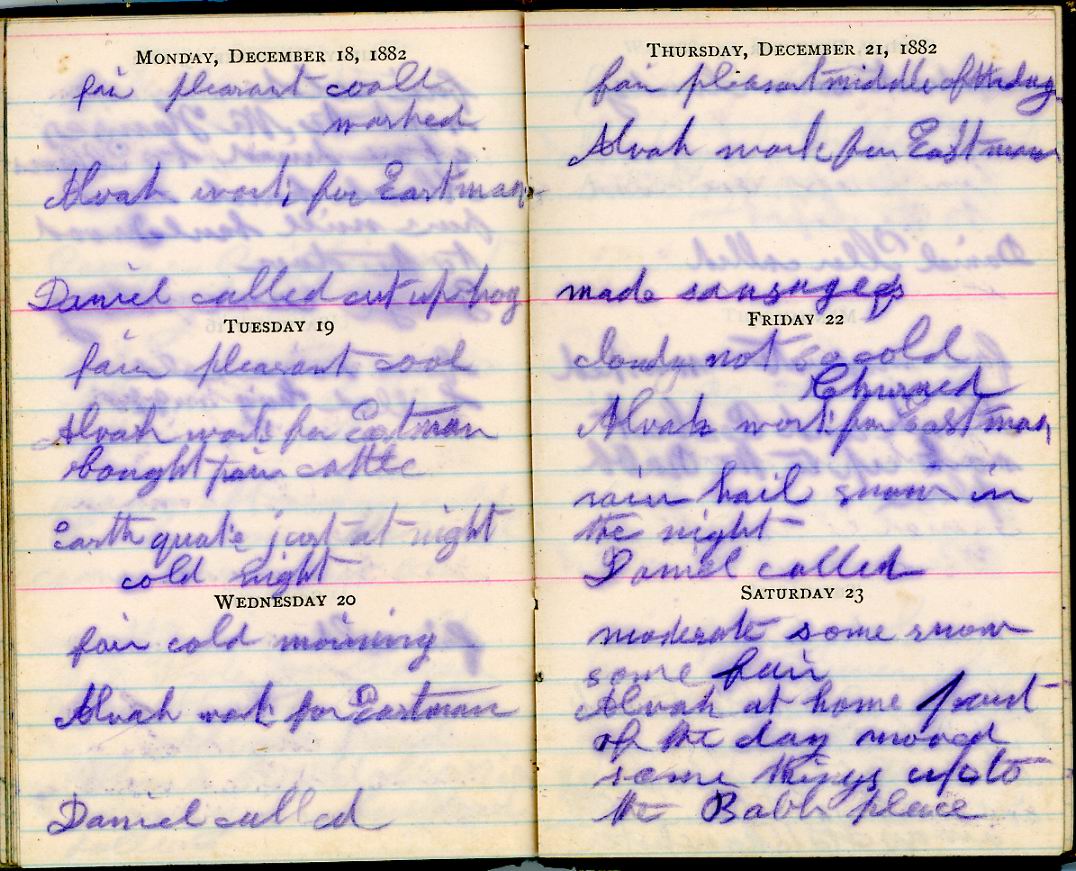 MONDAY, DECEMBER 18, 1882
fair pleasant coald
washed
Alvah work for Eastman
Daniel called cut up hog
TUESDAY 19
fair pleasant cool
Alvah work for Eastman
bought pair cattle
Earth quake just at night
cold night
WEDNESDAY 20
fair cold morning
Alvah work for Eastman
Daniel called
THURSDAY, DECEMBER 21, 1882
fair pleasant middle of the day
Alvah work for Eastman
made sausages
FRIDAY 22
cloudy not so cold
Churned
Alvah work for Eastman
rain hail snow in
the night
Daniel called
SATURDAY 23
moderate some snow
some fair
Alvah at home part
of the day moved
some things up to
the Babb place